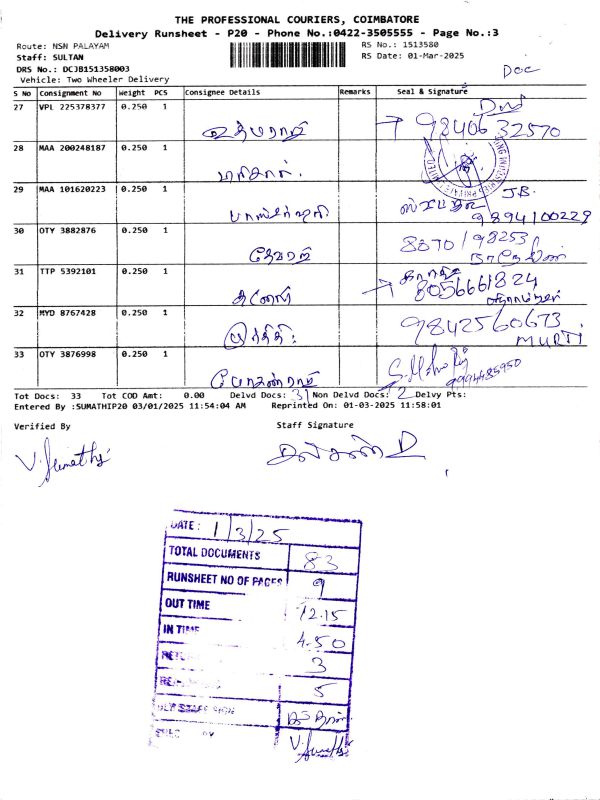 THE PROFESSIONAL COURIERS, COIMBATORE
Delivery Runsheet - P20 - Phone No.:0422-3505555 - Page No.:3
Route: NSN PALAYAM
RS No.: 1513580
Staff: SULTAN
RS Date: 01-Mar-2025
DRS No.: DCJB151358003
DOC
Vehicle: Two Wheeler Delivery
S No Consignment No Weight PCS Consignee Details Remarks Seal & Signature
27 VPL 225378377 0.250 1
9840632570
28 MAA 200248187 0.250 1
29 MAA 101620223 0.250 1
J.B.
9894100229
30 OTY 3882876 0.250 1
தேவராஜ்
8870198253
31 TTP 5392101 0.250 1
8056661824
32 MYD 8767428 0.250 1
மூர்த்தி
9842560673
MURTI
33 OTY 3876998 0.250 1
மோகன்ராஜ்
9994485950
Tot Docs: 33 Tot COD Amt: 0.00 Delvd Docs: 31 Non Delvd Docs: 2 Delvy Pts:
Entered By :SUMATHIP20 03/01/2025 11:54:04 AM Reprinted On: 01-03-2025 11:58:01
Verified By Staff Signature
V. Sumathy
DATE : 1/3/25
TOTAL DOCUMENTS 83
RUNSHEET NO OF PAGES 9
OUT TIME 12.15
IN TIME 4.50
3
5
DLY STAFF SIGN
V. Sumathy